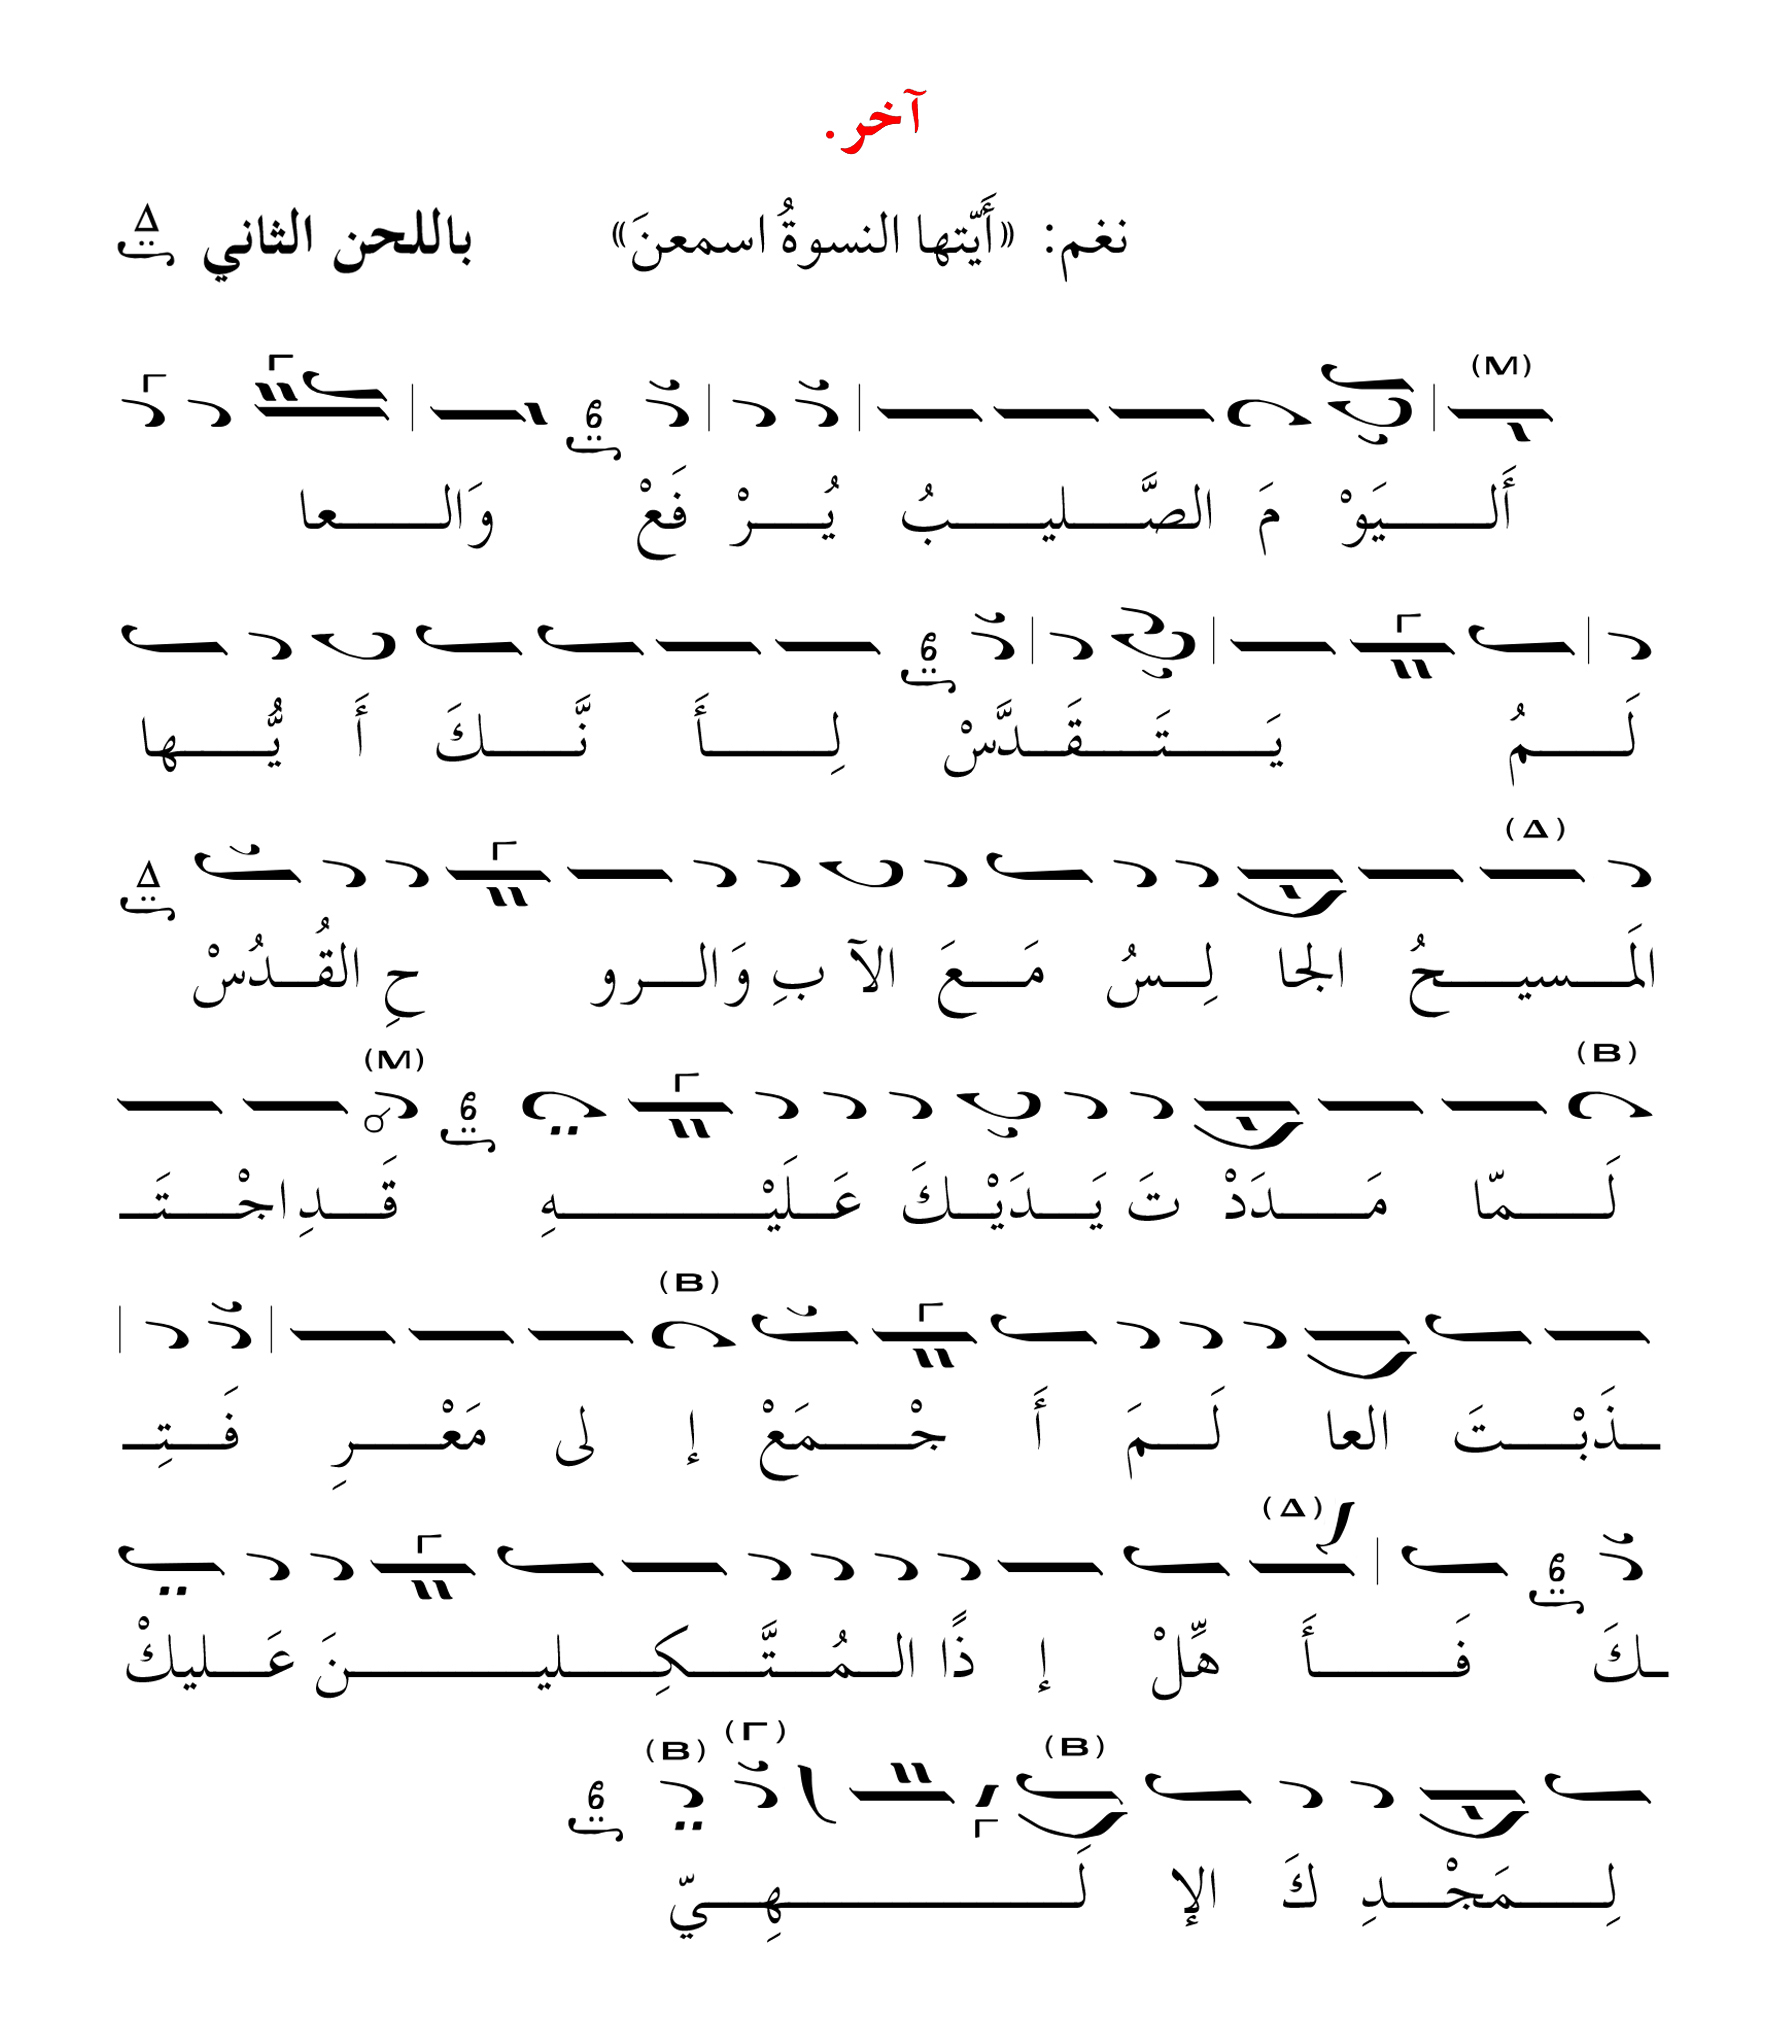 آخر.
نغم: «أَيّتها النسوةُ اسمعنَ» باللحن الثاني Δ
(M)
أَلـــيَوْ مَ الصَّـــليـــبُ يُـــرْ فَعْ وَالـــعا
لَـــمُ يَـــتَـــقَـــدَّسْ لِـــأَ نَّـــكَ أَ يُّـــها
(Δ)
المَـــسيـــحُ الجا لِـــسُ مَـــعَ الآ بِ وَالـــرو حِ القُـــدُسْ Δ
(B) (M)
لَـــمّا مَـــدَدْ تَ يَـــدَيْـــكَ عَـــلَيْـــهِ قَـــدِ اجْـــتَـــ
(B)
ـــذَبْـــتَ العا لَـــمَ أَ جْـــمَعْ إ لى مَعْـــرِ فَـــتِـــ
(Δ)
ـــكَ فَـــأَ هِّلْ إ ذًا الـــمُـــتَّـــكِـــليـــنَ عَـــليكْ
(B) (Γ) (B)
لِـــمَجْـــدِ كَ الإ لَـــهِـــيّ